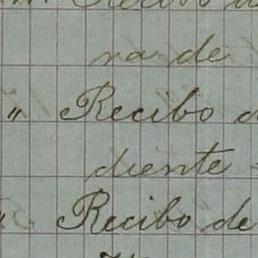 Recibo
ra de
" Recibo
diente
" Recibo de